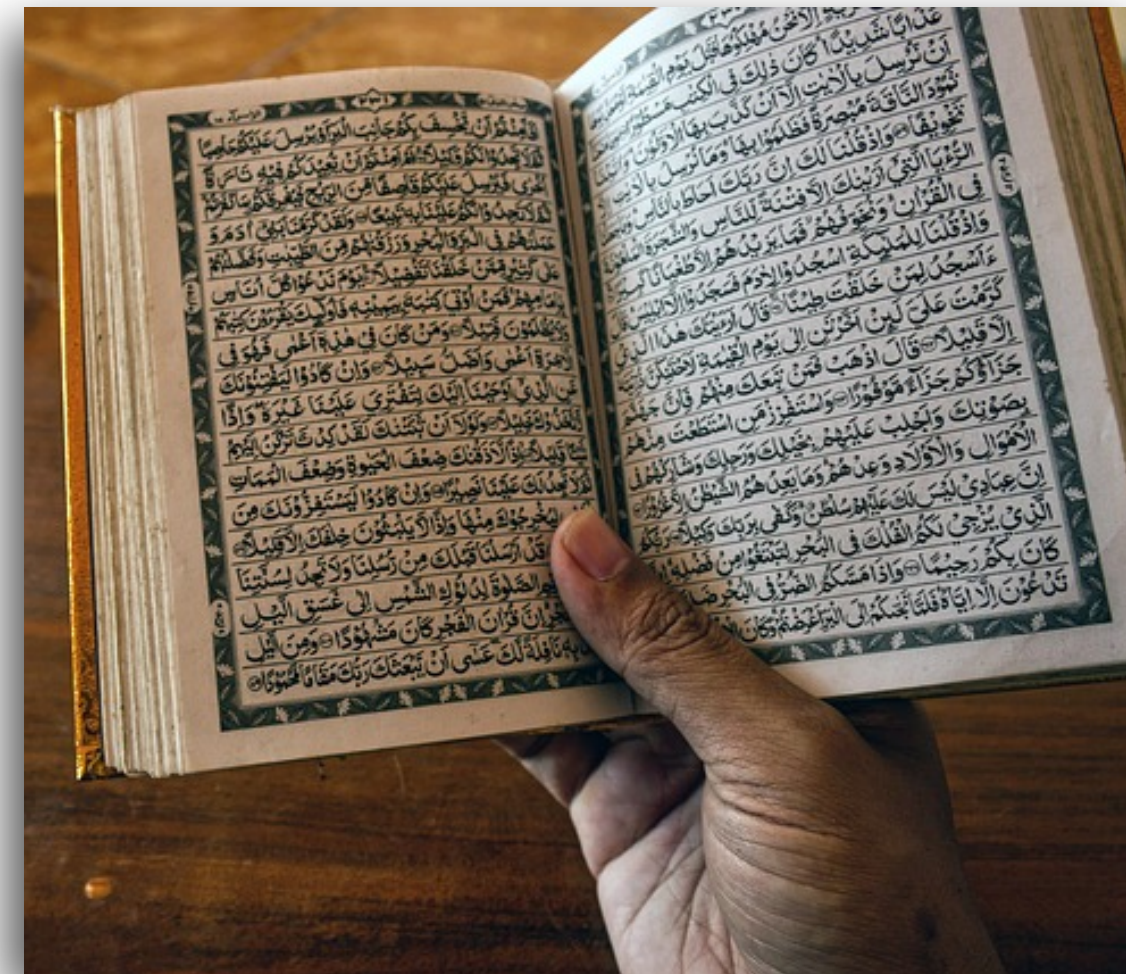 قَرْيَةٍ اِلَّا نَحْنُ مُهْلِكُوْهَا قَبْلَ يَوْمِ الْقِيٰمَةِ
عَذَابًا شَدِيْدًا كَانَ ذٰلِكَ فِى الْكِتٰبِ مَسْطُوْرًا
اَنْ نُّرْسِلَ بِالْاٰيٰتِ اِلَّآ اَنْ كَذَّبَ بِهَا الْاَوَّلُوْنَ وَاٰتَيْنَا
ثَمُوْدَ النَّاقَةَ مُبْصِرَةً فَظَلَمُوْا بِهَا وَمَا نُرْسِلُ بِالْاٰيٰتِ
تَخْوِيْفًا وَاِذْ قُلْنَا لَكَ اِنَّ رَبَّكَ اَحَاطَ بِالنَّاسِ
الرُّءْيَا الَّتِيْٓ اَرَيْنٰكَ اِلَّا فِتْنَةً لِّلنَّاسِ وَالشَّجَرَةَ الْمَلْعُوْنَةَ
فِى الْقُرْاٰنِ وَنُخَوِّفُهُمْ فَمَا يَزِيْدُهُمْ اِلَّا طُغْيَانًا كَبِيْرًا
وَاِذْ قُلْنَا لِلْمَلٰٓئِكَةِ اسْجُدُوْا لِاٰدَمَ فَسَجَدُوْٓا اِلَّآ اِبْلِيْسَ قَالَ
ءَاَسْجُدُ لِمَنْ خَلَقْتَ طِيْنًا قَالَ اَرَءَيْتَكَ هٰذَا الَّذِيْ
كَرَّمْتَ عَلَيَّ لَىِٕنْ اَخَّرْتَنِ اِلٰى يَوْمِ الْقِيٰمَةِ لَاَحْتَنِكَنَّ ذُرِّيَّتَهٗٓ
اِلَّا قَلِيْلًا قَالَ اذْهَبْ فَمَنْ تَبِعَكَ مِنْهُمْ فَاِنَّ جَهَنَّمَ
جَزَآؤُكُمْ جَزَآءً مَّوْفُوْرًا وَاسْتَفْزِزْ مَنِ اسْتَطَعْتَ مِنْهُمْ
بِصَوْتِكَ وَاَجْلِبْ عَلَيْهِمْ بِخَيْلِكَ وَرَجِلِكَ وَشَارِكْهُمْ فِى
الْاَمْوَالِ وَالْاَوْلَادِ وَعِدْهُمْ وَمَا يَعِدُهُمُ الشَّيْطٰنُ اِلَّا غُرُوْرًا
اِنَّ عِبَادِيْ لَيْسَ لَكَ عَلَيْهِمْ سُلْطٰنٌ وَكَفٰى بِرَبِّكَ وَكِيْلًا رَبُّكُمُ
الَّذِيْ يُزْجِيْ لَكُمُ الْفُلْكَ فِى الْبَحْرِ لِتَبْتَغُوْا مِنْ فَضْلِهٖ
كَانَ بِكُمْ رَحِيْمًا وَاِذَا مَسَّكُمُ الضُّرُّ فِى الْبَحْرِ ضَلَّ
تَدْعُوْنَ اِلَّآ اِيَّاهُ فَلَمَّا نَجّٰىكُمْ اِلَى الْبَرِّ اَعْرَضْتُمْ وَكَانَ
اَفَاَمِنْتُمْ اَنْ يَّخْسِفَ بِكُمْ جَانِبَ الْبَرِّ اَوْ يُرْسِلَ عَلَيْكُمْ حَاصِبًا
ثُمَّ لَا تَجِدُوْا لَكُمْ وَكِيْلًا اَمْ اَمِنْتُمْ اَنْ يُّعِيْدَكُمْ فِيْهِ تَارَةً
اُخْرٰى فَيُرْسِلَ عَلَيْكُمْ قَاصِفًا مِّنَ الرِّيْحِ فَيُغْرِقَكُمْ بِمَا كَفَرْتُمْ
ثُمَّ لَا تَجِدُوْا لَكُمْ عَلَيْنَا بِهٖ تَبِيْعًا وَلَقَدْ كَرَّمْنَا بَنِيْٓ اٰدَمَ وَ
حَمَلْنٰهُمْ فِى الْبَرِّ وَالْبَحْرِ وَرَزَقْنٰهُمْ مِّنَ الطَّيِّبٰتِ وَفَضَّلْنٰهُمْ
عَلٰى كَثِيْرٍ مِّمَّنْ خَلَقْنَا تَفْضِيْلًا يَوْمَ نَدْعُوْا كُلَّ اُنَاسٍ
بِاِمَامِهِمْ فَمَنْ اُوْتِيَ كِتٰبَهٗ بِيَمِيْنِهٖ فَاُولٰٓئِكَ يَقْرَءُوْنَ كِتٰبَهُمْ
وَلَا يُظْلَمُوْنَ فَتِيْلًا وَمَنْ كَانَ فِيْ هٰذِهٖٓ اَعْمٰى فَهُوَ فِى
الْاٰخِرَةِ اَعْمٰى وَاَضَلُّ سَبِيْلًا وَاِنْ كَادُوْا لَيَفْتِنُوْنَكَ
عَنِ الَّذِيْٓ اَوْحَيْنَآ اِلَيْكَ لِتَفْتَرِيَ عَلَيْنَا غَيْرَهٗ وَاِذًا
لَّاتَّخَذُوْكَ خَلِيْلًا وَلَوْلَآ اَنْ ثَبَّتْنٰكَ لَقَدْ كِدْتَّ تَرْكَنُ اِلَيْهِمْ
شَيْـًٔا قَلِيْلًا اِذًا لَّاَذَقْنٰكَ ضِعْفَ الْحَيٰوةِ وَضِعْفَ الْمَمَاتِ
ثُمَّ لَا تَجِدُ لَكَ عَلَيْنَا نَصِيْرًا وَاِنْ كَادُوْا لَيَسْتَفِزُّوْنَكَ مِنَ
لِيُخْرِجُوْكَ مِنْهَا وَاِذًا لَّا يَلْبَثُوْنَ خِلٰفَكَ اِلَّا قَلِيْلًا
قَدْ اَرْسَلْنَا قَبْلَكَ مِنْ رُّسُلِنَا وَلَا تَجِدُ لِسُنَّتِنَا
الصَّلٰوةَ لِدُلُوْكِ الشَّمْسِ اِلٰى غَسَقِ الَّيْلِ
اِنَّ قُرْاٰنَ الْفَجْرِ كَانَ مَشْهُوْدًا وَمِنَ الَّيْلِ
بِهٖ نَافِلَةً لَّكَ عَسٰٓى اَنْ يَّبْعَثَكَ رَبُّكَ مَقَامًا مَّحْمُوْدًا